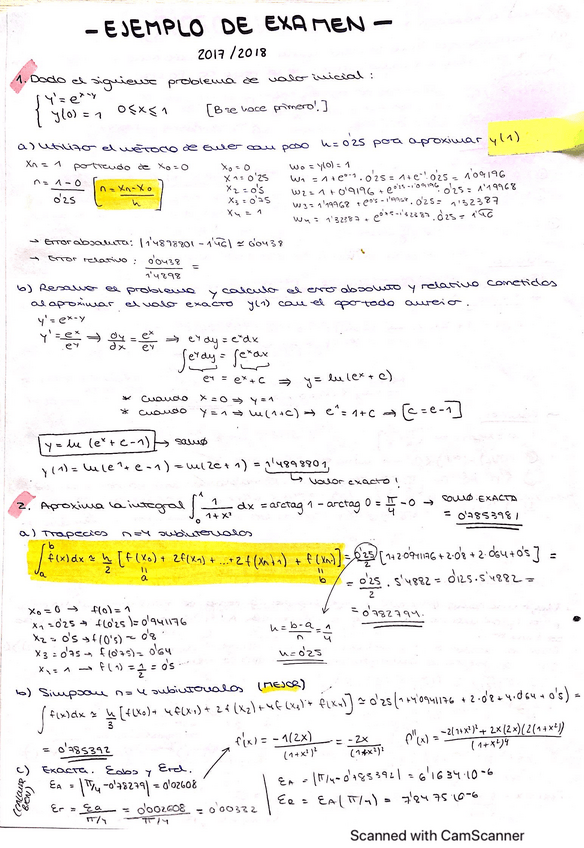 - EJEMPLO DE EXAMEN -
2017/2018
1. Dado el siguiente problema de valor inicial:
{ y' = e^x-y
y(0) = 1 0≤x≤1 [B se hace primero!]
a) Utilizar el método de Euler con paso h=0'25 para aproximar y(1)
Xn = 1 partiendo de x0=0
n = 1-0 / 0'25 [n = Xn-X0 / h]
X0 = 0
X1 = 0'25
X2 = 0'5
X3 = 0'75
X4 = 1
W0 = y(0) = 1
W1 = 1 + e^0-1 · 0'25 = 1 + e^-1 · 0'25 = 1'09196
W2 = 1 + 0'09196 + e^0'25-1'09196 · 0'25 = 1'19968
W3 = 1'19968 + e^0'5-1'19968 · 0'25 = 1'32387
→ Error absoluto: |1'4898801 - | ≈ 0'0438
→ Error relativo: 0'0438 / 1'4898 =
b) Resolver el problema y calcula el error absoluto y relativo cometidos
al aproximar el valor exacto y(1) con el apartado anterior.
y' = e^x-y
y' = e^x / e^y ⇒ dy/dx = e^x / e^y ⇒ e^y dy = e^x dx
∫e^y dy = ∫e^x dx
e^y = e^x + C ⇒ y = ln(e^x + C)
* cuando x=0 ⇒ y=1
* cuando y=1 ⇒ ln(1+C) → e^1 = 1+C ⇒ [C = e-1]
y = ln(e^x + e - 1) →
y(1) = ln(e^1 + e - 1) = ln(2e + 1) = 1'4898801
↳ Valor exacto!
2. Aproxima la integral ∫0 1 1/(1+x²) dx = arctag 1 - arctag 0 = π/4 - 0 → SOLUC EXACTA
= 0'7853981
a) Trapecios n=4 subintervalos
∫a b f(x)dx ≃ h/2 [f(x0) + 2f(x1) + ... + 2f(xn-1) + f(xn)] = 0'25/2 [1+2·0'941176+2·0'8+2·0'64+0'5] =
a b
= 0'25/2 · 5'4882 = 0'125 · 5'4882 =
= 0'782794.
x0 = 0 → f(0) = 1
x1 = 0'25 → f(0'25) = 0'941176
x2 = 0'5 → f(0'5) = 0'8
x3 = 0'75 → f(0'75) = 0'64
x4 = 1 → f(1) = 1/2 = 0'5
h = b-a / n = 1/4
h = 0'25
b) Simpson n=4 subintervalos (MEJOR)
∫ f(x)dx ≃ h/3 [f(x0) + 4f(x1) + 2f(x2) + 4f(x3) + f(xn)] ≃ 0'25 (1+4·0'941176+2·0'8+4·0'64+0'5) =
= 0'785392
f'(x) = -1(2x) / (1+x²)² = -2x / (1+x²)² f''(x) = -2(1+x²)² + 2x(2x)(2(1+x²)) / (1+x²)^4
c) Exacta. Eabs y Erel.
EA = |π/4 - 0'78279| = 0'02608
Er = Ea / π/4 = 0'002608 / π/4 = 0'00332
EA = |π/4 - 0'785392| = 6'1634·10^-6
ER = EA (π/4) = 7'8475·10^-6
Scanned with CamScanner